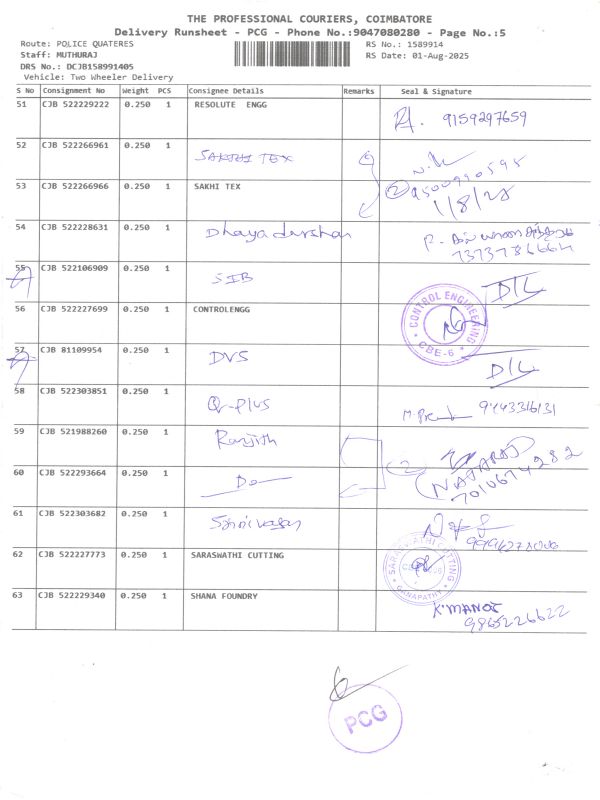 THE PROFESSIONAL COURIERS, COIMBATORE
Delivery Runsheet - PCG - Phone No.:9047080280 - Page No.:5
Route: POLICE QUATERES RS No.: 1589914
Staff: MUTHURAJ RS Date: 01-Aug-2025
DRS No.: DCJB158991405
Vehicle: Two Wheeler Delivery
S No Consignment No Weight PCS Consignee Details Remarks Seal & Signature
51 CJB 522229222 0.250 1 RESOLUTE ENGG 9159297659
52 CJB 522266961 0.250 1 SAKHI TEX
53 CJB 522266966 0.250 1 SAKHI TEX 2 9500990595
1/8/25
54 CJB 522228631 0.250 1 Dhayadarshan
55 CJB 522106909 0.250 1 SIB D/L
56 CJB 522227699 0.250 1 CONTROLENGG CONTROL ENGINEERING CBE-6
57 CJB 81109954 0.250 1 DVS D/L
58 CJB 522303851 0.250 1 Q-Plus 9443316131
59 CJB 521988260 0.250 1 Ranjith
60 CJB 522293664 0.250 1 Do 2 NATARAJ
7010674282
61 CJB 522303682 0.250 1 Srinivasan
62 CJB 522227773 0.250 1 SARASWATHI CUTTING SARASWATHI CUTTING GANAPATHY
63 CJB 522229340 0.250 1 SHANA FOUNDRY K.MANOJ
9865226622
PCG